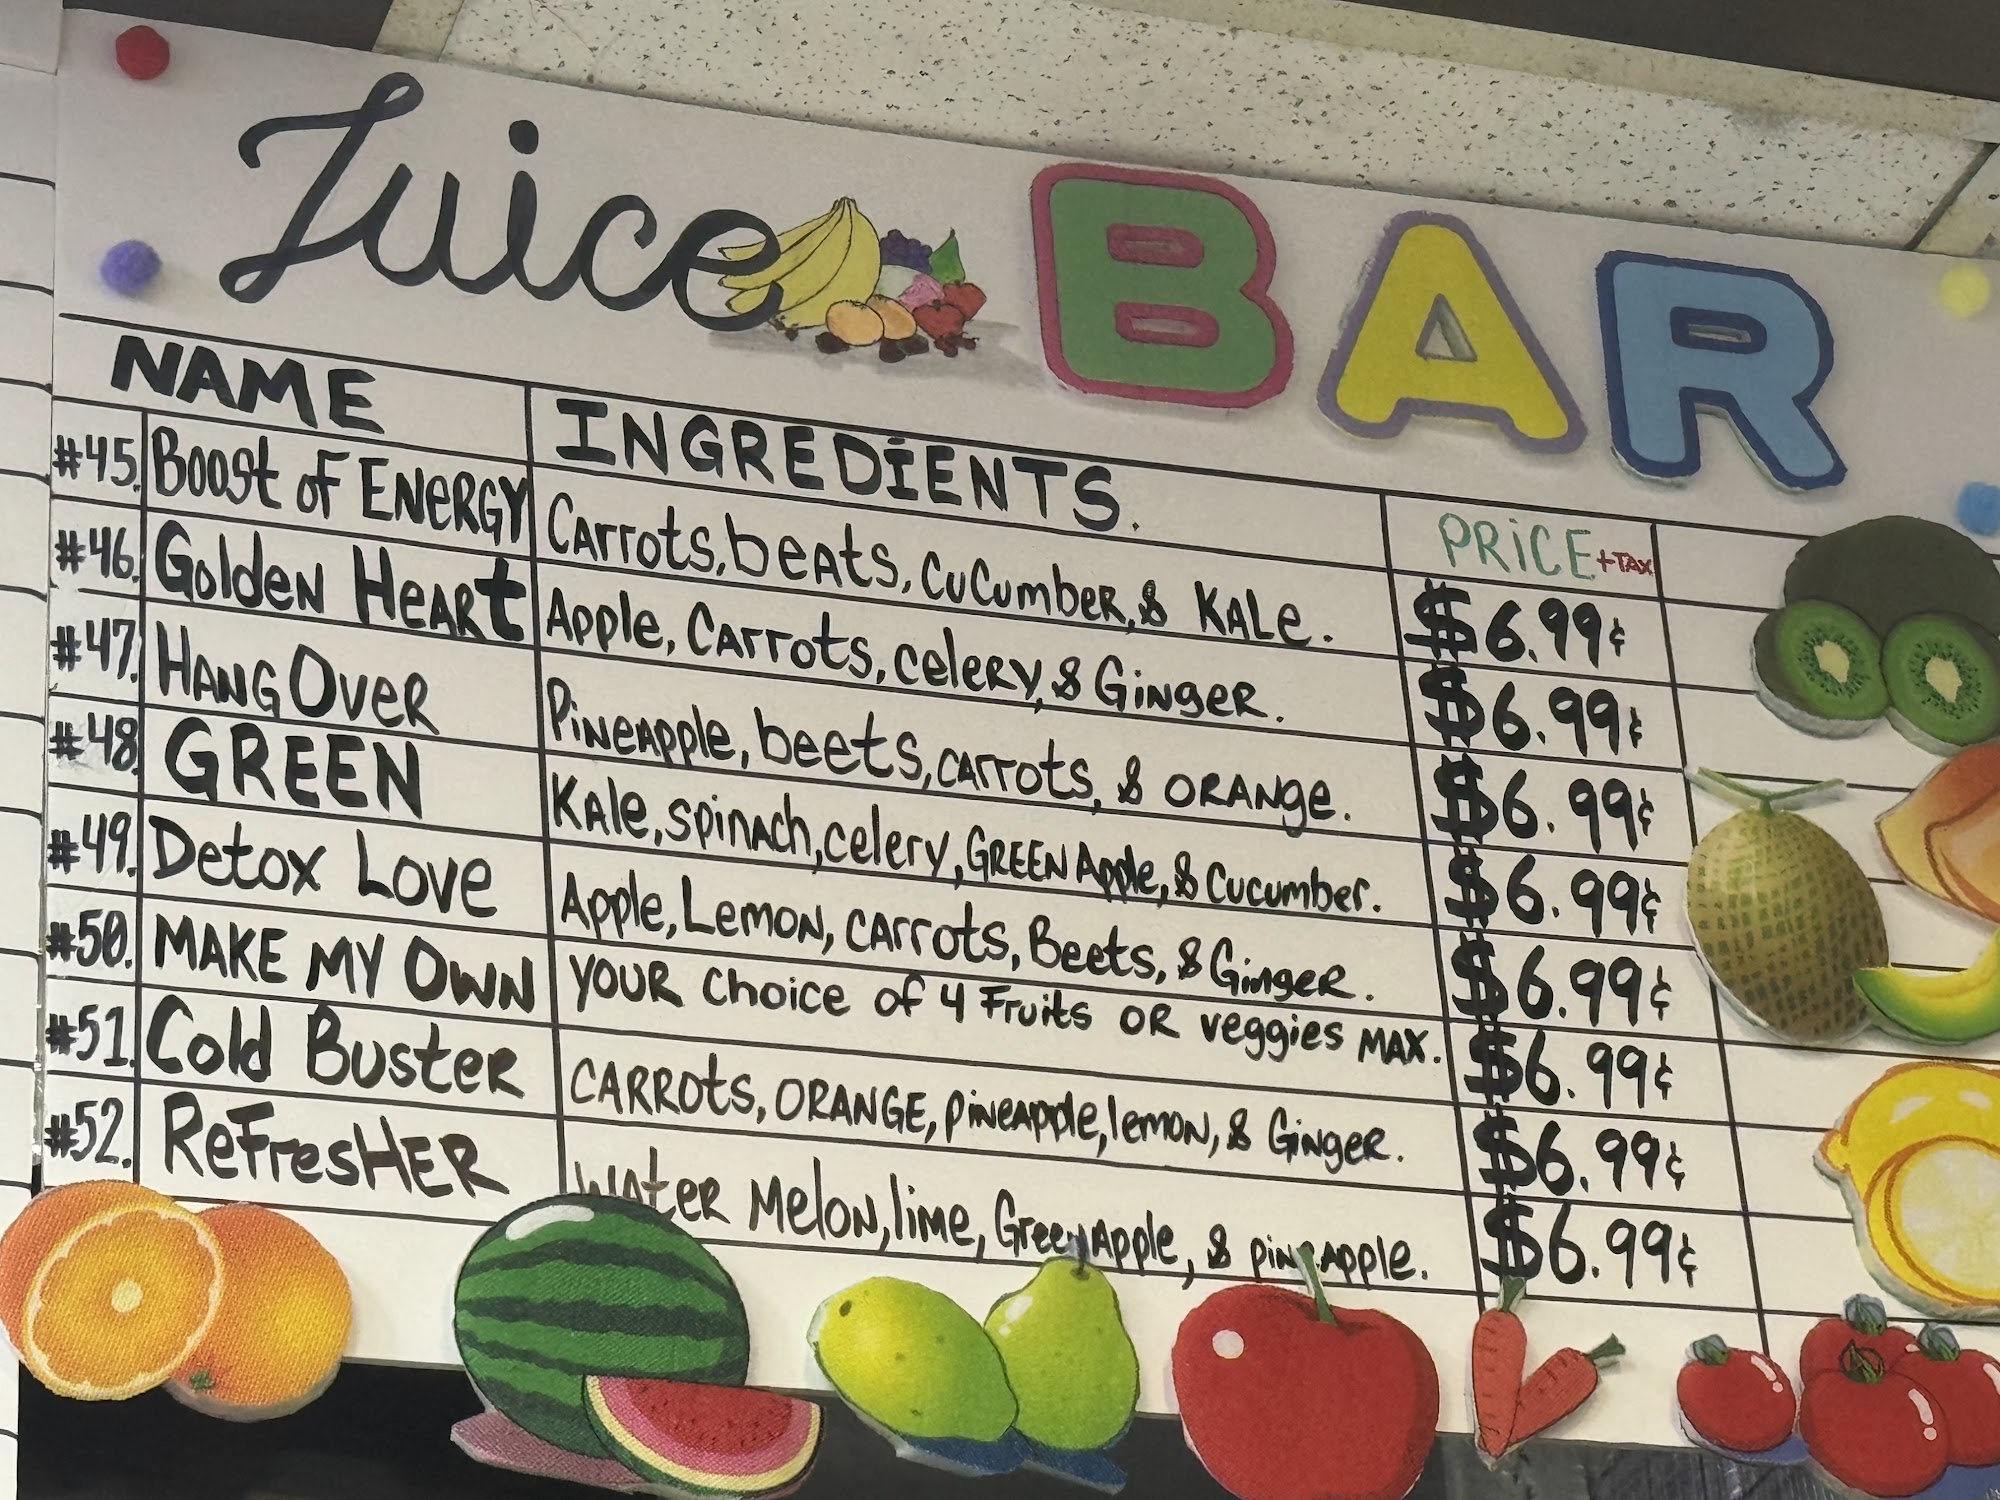 Juice BAR
NAME INGREDIENTS. PRICE +TAX
#45. Boost of ENERGY Carrots, beats, cucumber, & KALE. $6.99¢
#46. Golden Heart Apple, Carrots, celery, & Ginger. $6.99¢
#47. HANGOver Pineapple, beets, carrots, & ORANGE. $6.99¢
#48. GREEN Kale, spinach, celery, GREEN Apple, & Cucumber. $6.99¢
#49. Detox Love Apple, Lemon, carrots, Beets, & Ginger. $6.99¢
#50. MAKE MY OWN YOUR choice of 4 Fruits OR veggies MAX. $6.99¢
#51. Cold Buster CARROTS, ORANGE, pineapple, lemon, & Ginger. $6.99¢
#52. RefresHER Water Melon, lime, Green Apple, & pineapple. $6.99¢